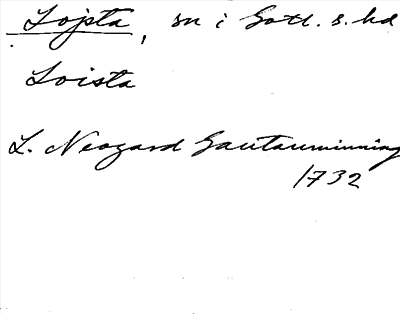 Lojsta, sn i Gotl. s. hd
Loista
L. Neogard Gautauminning
1732